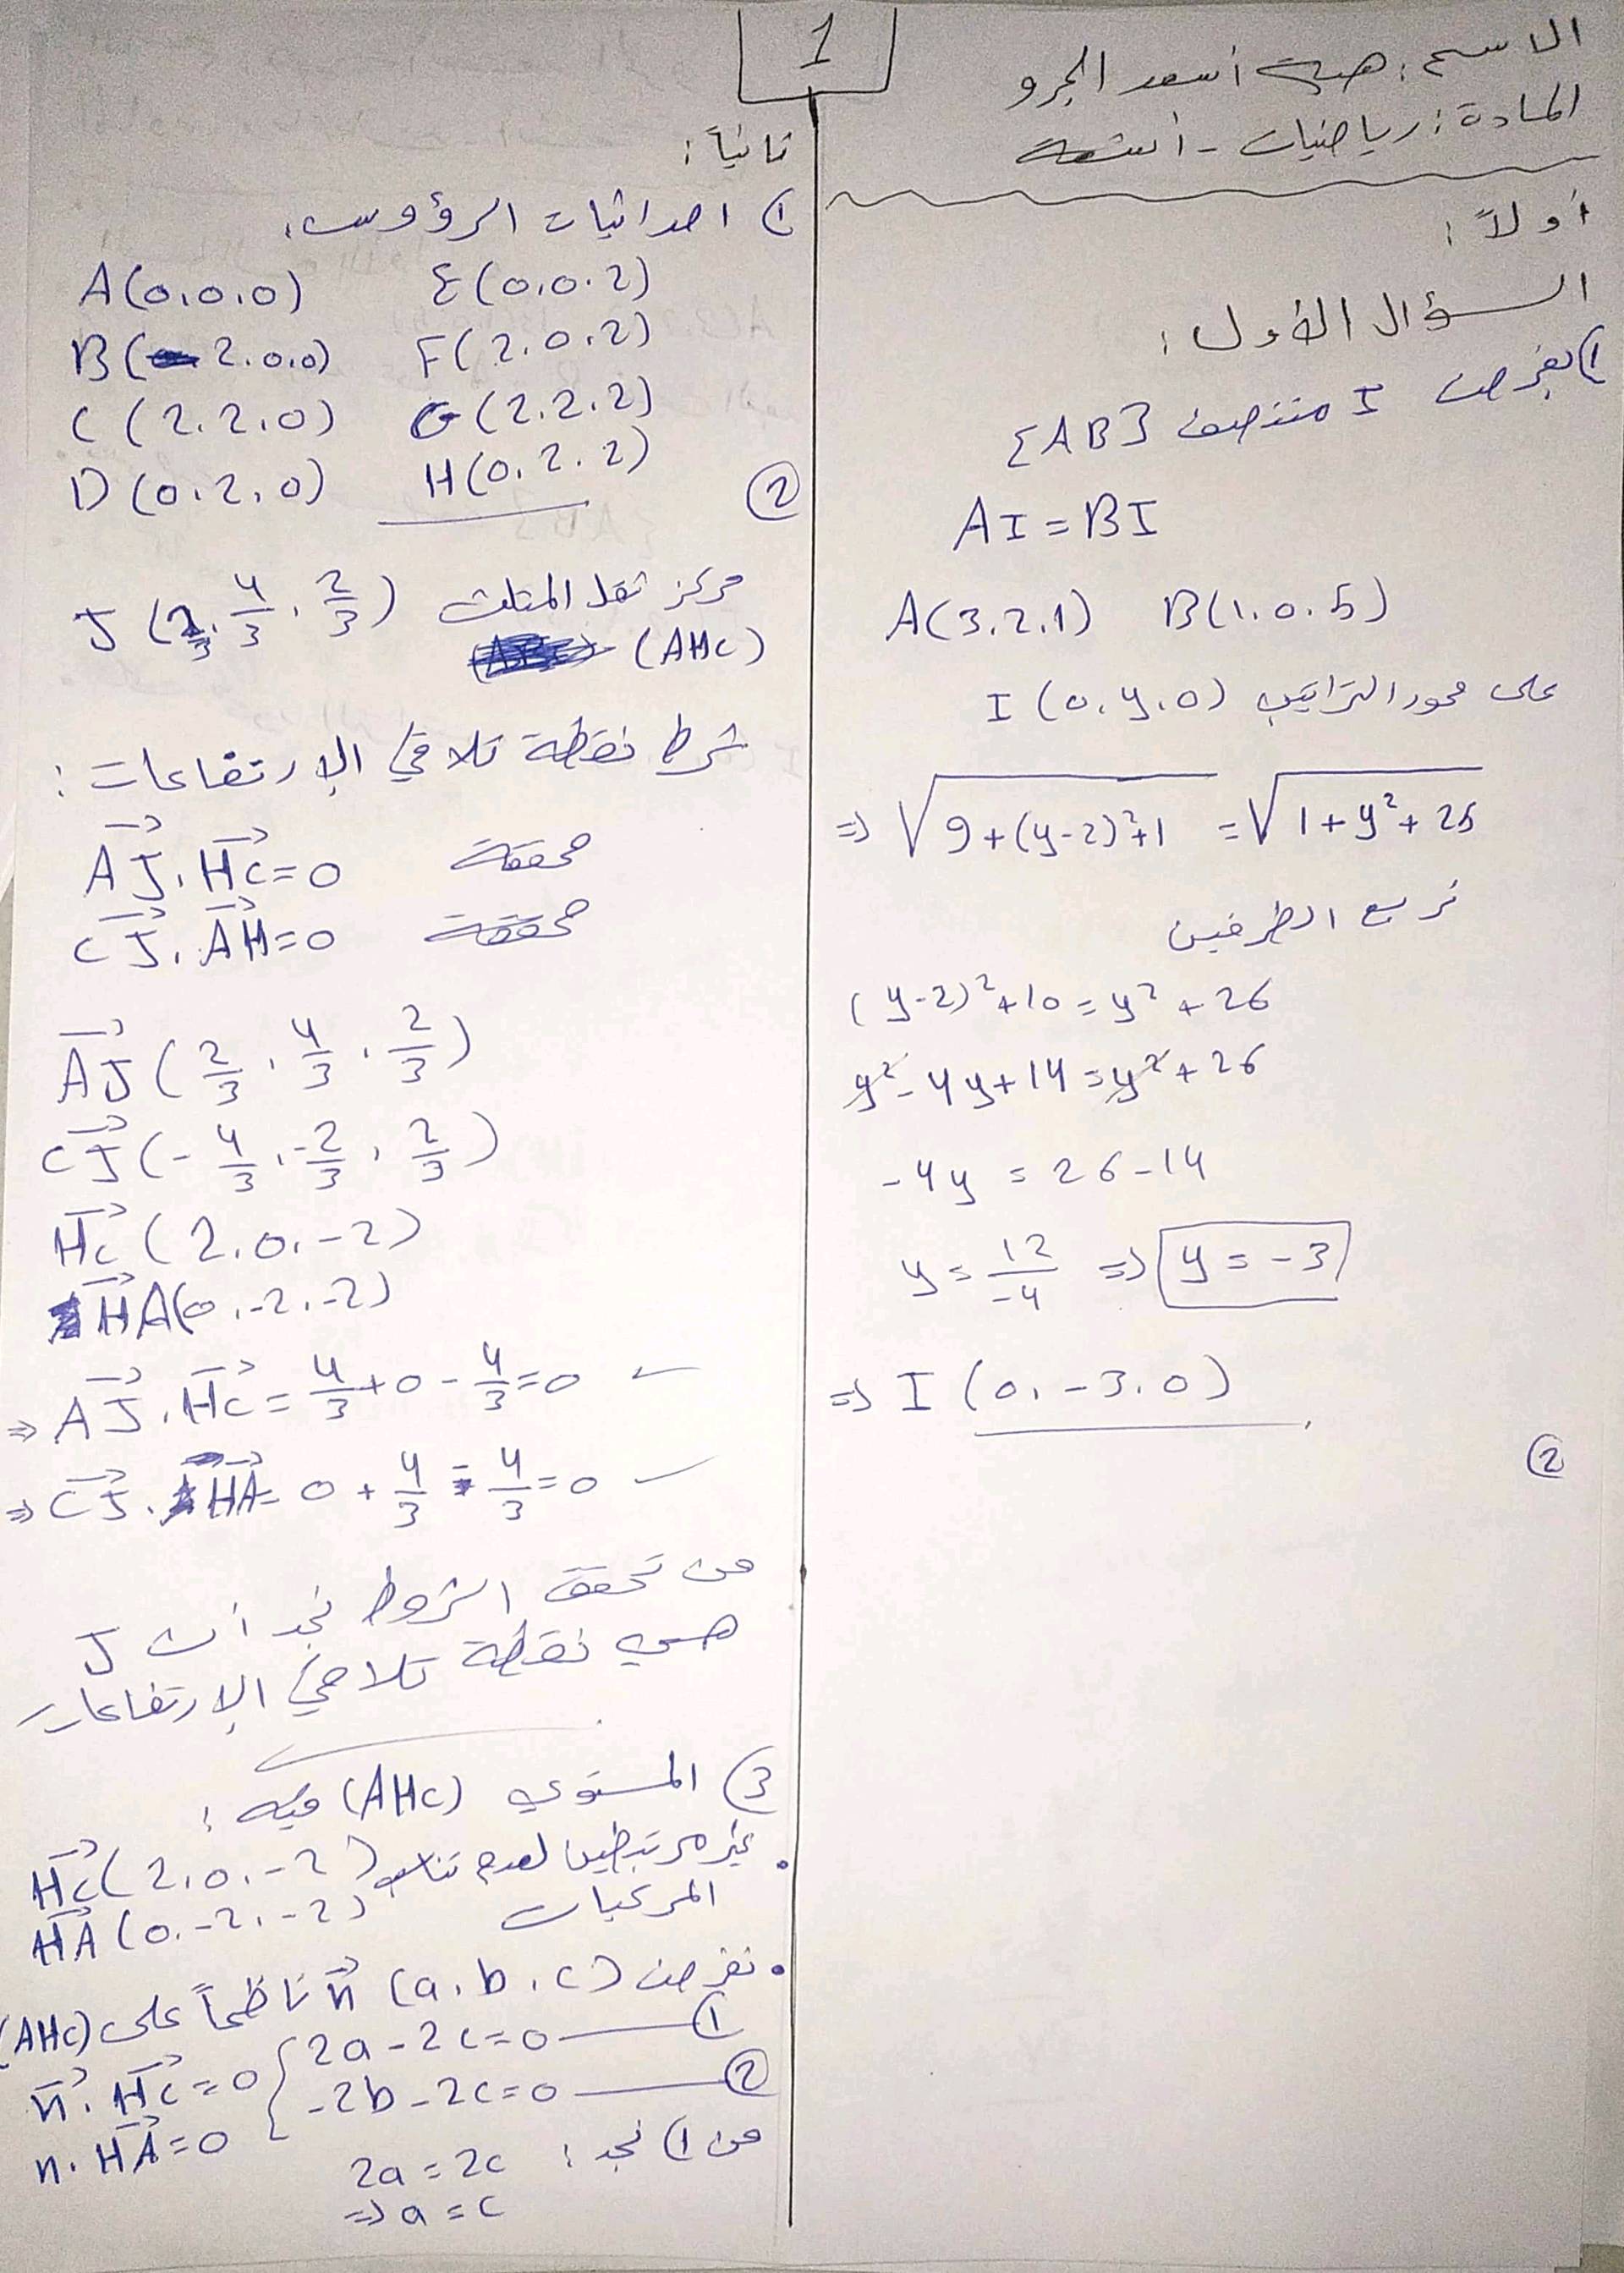 1
الاسم: هبة أسعد الجرو
المادة: رياضيات - أشعة
أولاً:
السؤال الأول:
1) بفرض I منتصف [AB]
AI = BI
A(3,2,1) B(1,0,5)
على محور التراتيب I(0,y,0)
⇒ √(9+(y-2)²+1) = √(1+y²+25)
نربع الطرفين
(y-2)²+10 = y²+26
y²-4y+14 = y²+26
-4y = 26-14
y = 12/-4 ⇒ y = -3
⇒ I(0,-3,0)
②
ثانياً:
1) احداثيات الرؤوس:
A(0,0,0) E(0,0,2)
B(2,0,0) F(2,0,2)
C(2,2,0) G(2,2,2)
D(0,2,0) H(0,2,2)
②
مركز ثقل المثلث J(2/3, 4/3, 2/3)
(AHC)
شرط نقطة تلاقي الإرتفاعات:
AJ→ . HC→ = 0 محققة
CJ→ . AH→ = 0 محققة
AJ→(2/3, 4/3, 2/3)
CJ→(-4/3, -2/3, 2/3)
HC→(2,0,-2)
HA→(0,-2,-2)
⇒ AJ→ . HC→ = 4/3 + 0 - 4/3 = 0
⇒ CJ→ . HA→ = 0 + 4/3 - 4/3 = 0
من تحقق الشروط نجد أن J
هي نقطة تلاقي الإرتفاعات
③ المستوي (AHC) فيه:
HC→(2,0,-2) غير مرتبطين لعدم تناسب
HA→(0,-2,-2) المركبات
• نفرض n→(a,b,c) ناظماً على (AHC)
n→ . HC→ = 0 { 2a-2c=0 ——①
n . HA→ = 0 { -2b-2c=0 ——②
من 1) نجد: 2a = 2c
⇒ a = c